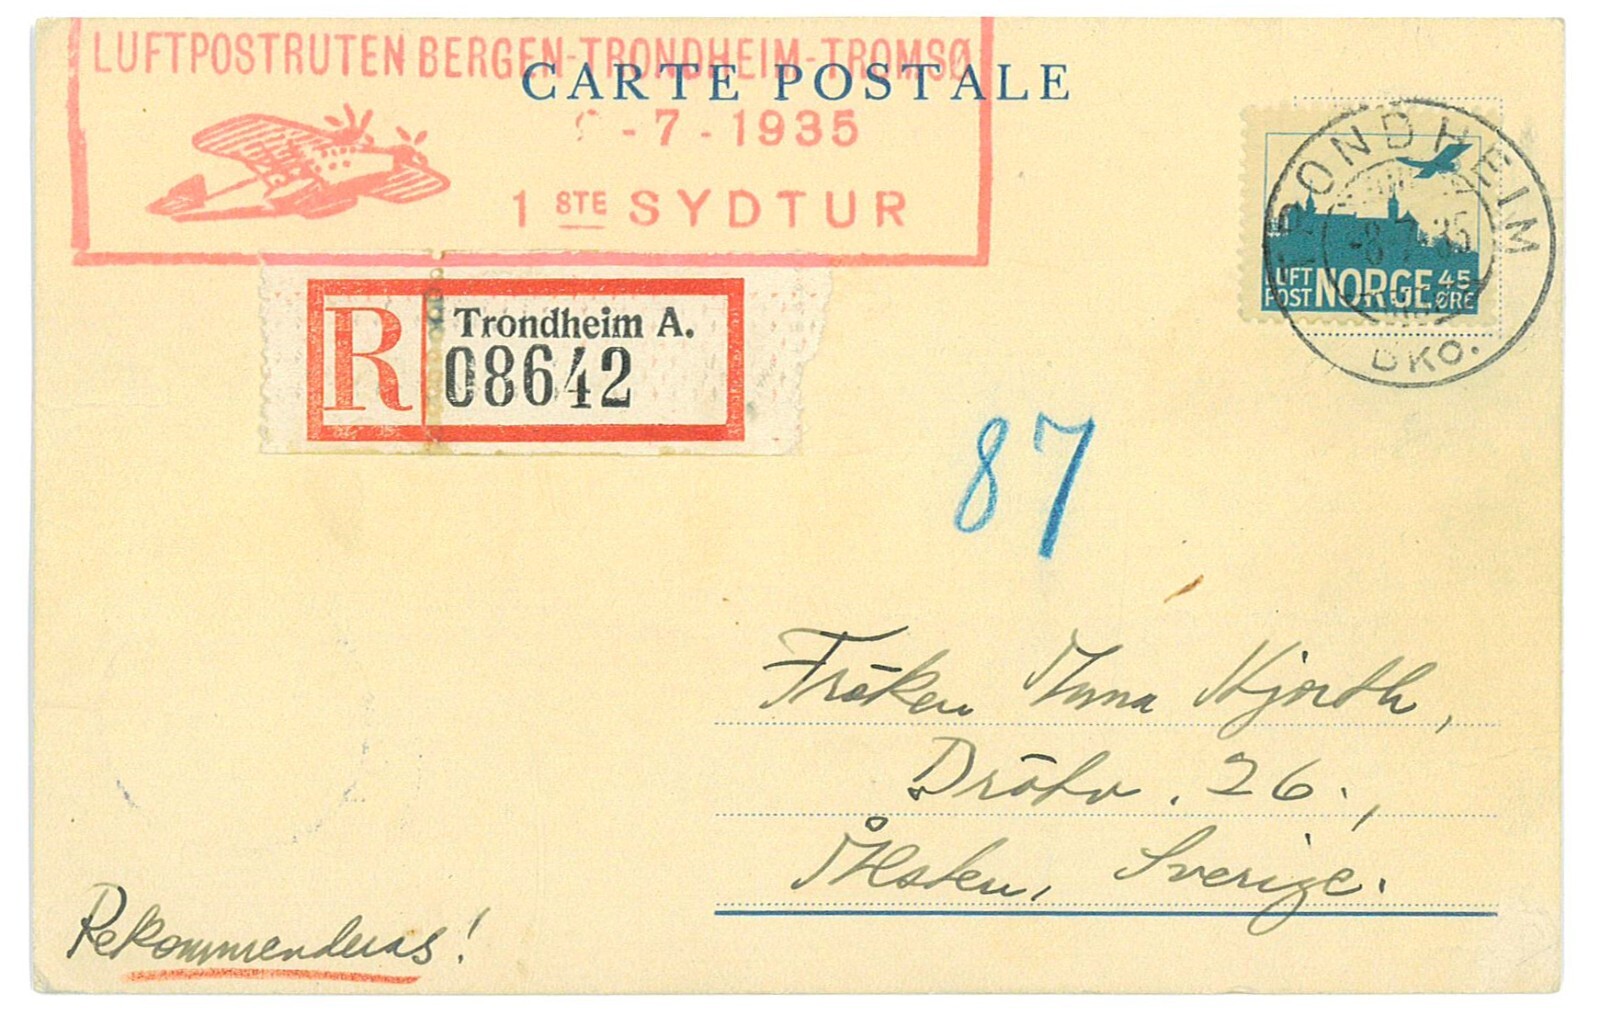 LUFTPOSTRUTEN BERGEN-TRONDHEIM-TROMSØ
CARTE POSTALE
-7-1935
1STE SYDTUR
TRONDHEIM
-8.7.35
BKO.
LUFT
POST NORGE 45
ØRE
R
Trondheim A.
08642
87
Fröken Hjorth,
26.,
Sverige.
Rekommenderas!